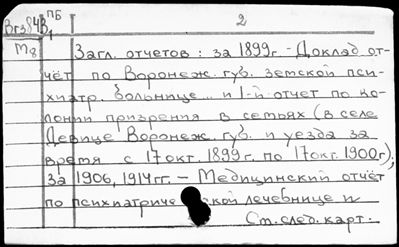 Вгз84В ПБ 2
1
М8 Загл. отчетов: за 1899г. - Доклад от-
чёт по Воронеж. губ. земской пси-
хиатр. больнице ... и 1-й отчет по ко-
лонии призрения в семьях (в селе
Девице Воронеж. губ. и уезда за
время с 17 окт. 1899г. по 17 окт. 1900г.);
за 1906, 1914гг. - Медицинский отчёт
по психиатриче ской лечебнице и
См. след. карт.